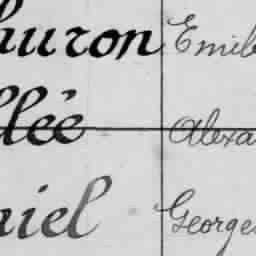 huron Emile
llée Alexa
niel Georges